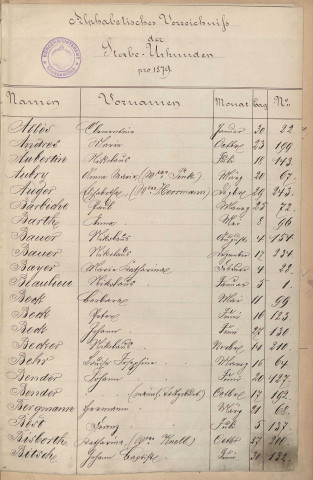 Alphabetisches Verzeichniß
der
Sterbe-Urkunden
pro 1879.
Namen Vornamen Monat Tag No.
Alles Clementine Januar 30 22.
Andres Marie Octbr 23 199.
Aubertin Nikolaus Juli 18 143.
Aubry Anna Maria März 20 67.
Auger Elisabetha (Wwe Herrmann) 243.
Barbiche Paul März 25 72.
Barth Anna Mai 8 96
Bauer Nikolaus August 4 154.
Bauer Nikolaus Dezember 17 234.
Bayer Maria Katharina Februar 4 22.
Nikolaus Januar 5 1.
Beck Barbara Mai 11 99.
Beck Peter Juni 16 123.
Beck Johann Juni 27 130
Becker Nikolaus Novbr 14 210.
Behr Louise Josephine März 16 64.
Bender Johann Juni 20 127.
Bender Octbr 17 192.
Bergmann Hermann März 21 68.
Franz Juli 5 137.
Bisborth Katharina (Wwe Knell) Octbr
Bitsch Johann Baptist Juni 30 132.